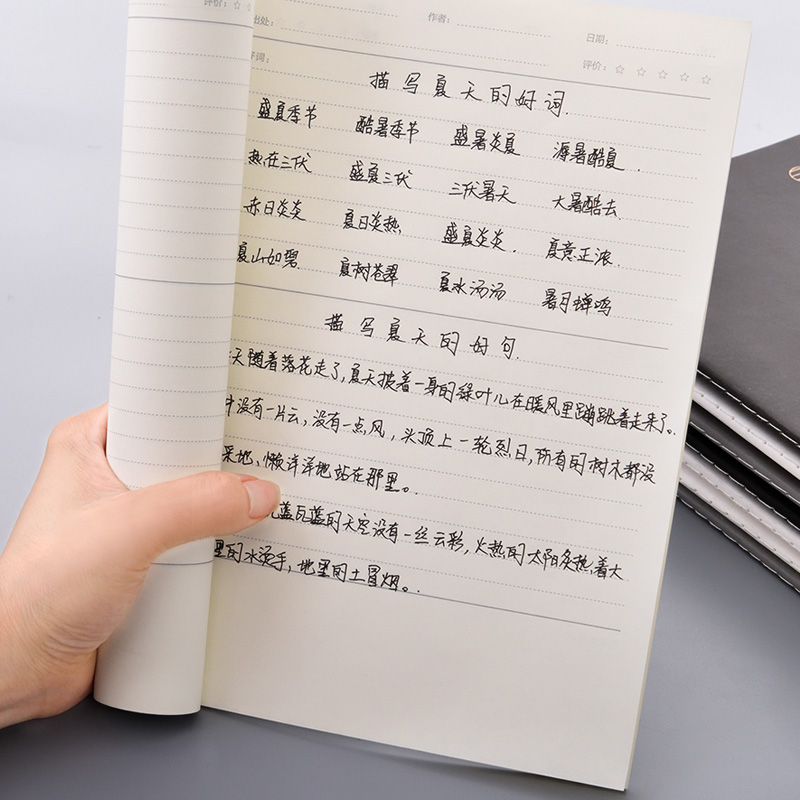 评价：☆
作者：
日期：
出处：
好词：
评价：☆ ☆ ☆ ☆ ☆
描写夏天的好词.
盛夏季节 酷暑季节 盛暑炎夏 暑酷夏.
热在三伏 盛夏三伏 三伏暑天 大暑酷去.
赤日炎炎 夏日炎热. 盛夏炎炎. 夏意正浓.
夏山如碧. 夏树苍翠 夏水汤汤 暑月蝉鸣
描写夏天的好句.
天随着落花走了,夏天披着一身的绿叶儿在暖风里蹦跳着走来了。.
没有一片云,没有一点风,头顶上一轮烈日,所有的树木都没
采地、懒洋洋地站在那里。.
蓝瓦蓝的天空没有一丝云彩,火热的太阳炙热着大
里的水烫手,地里的土冒烟。.